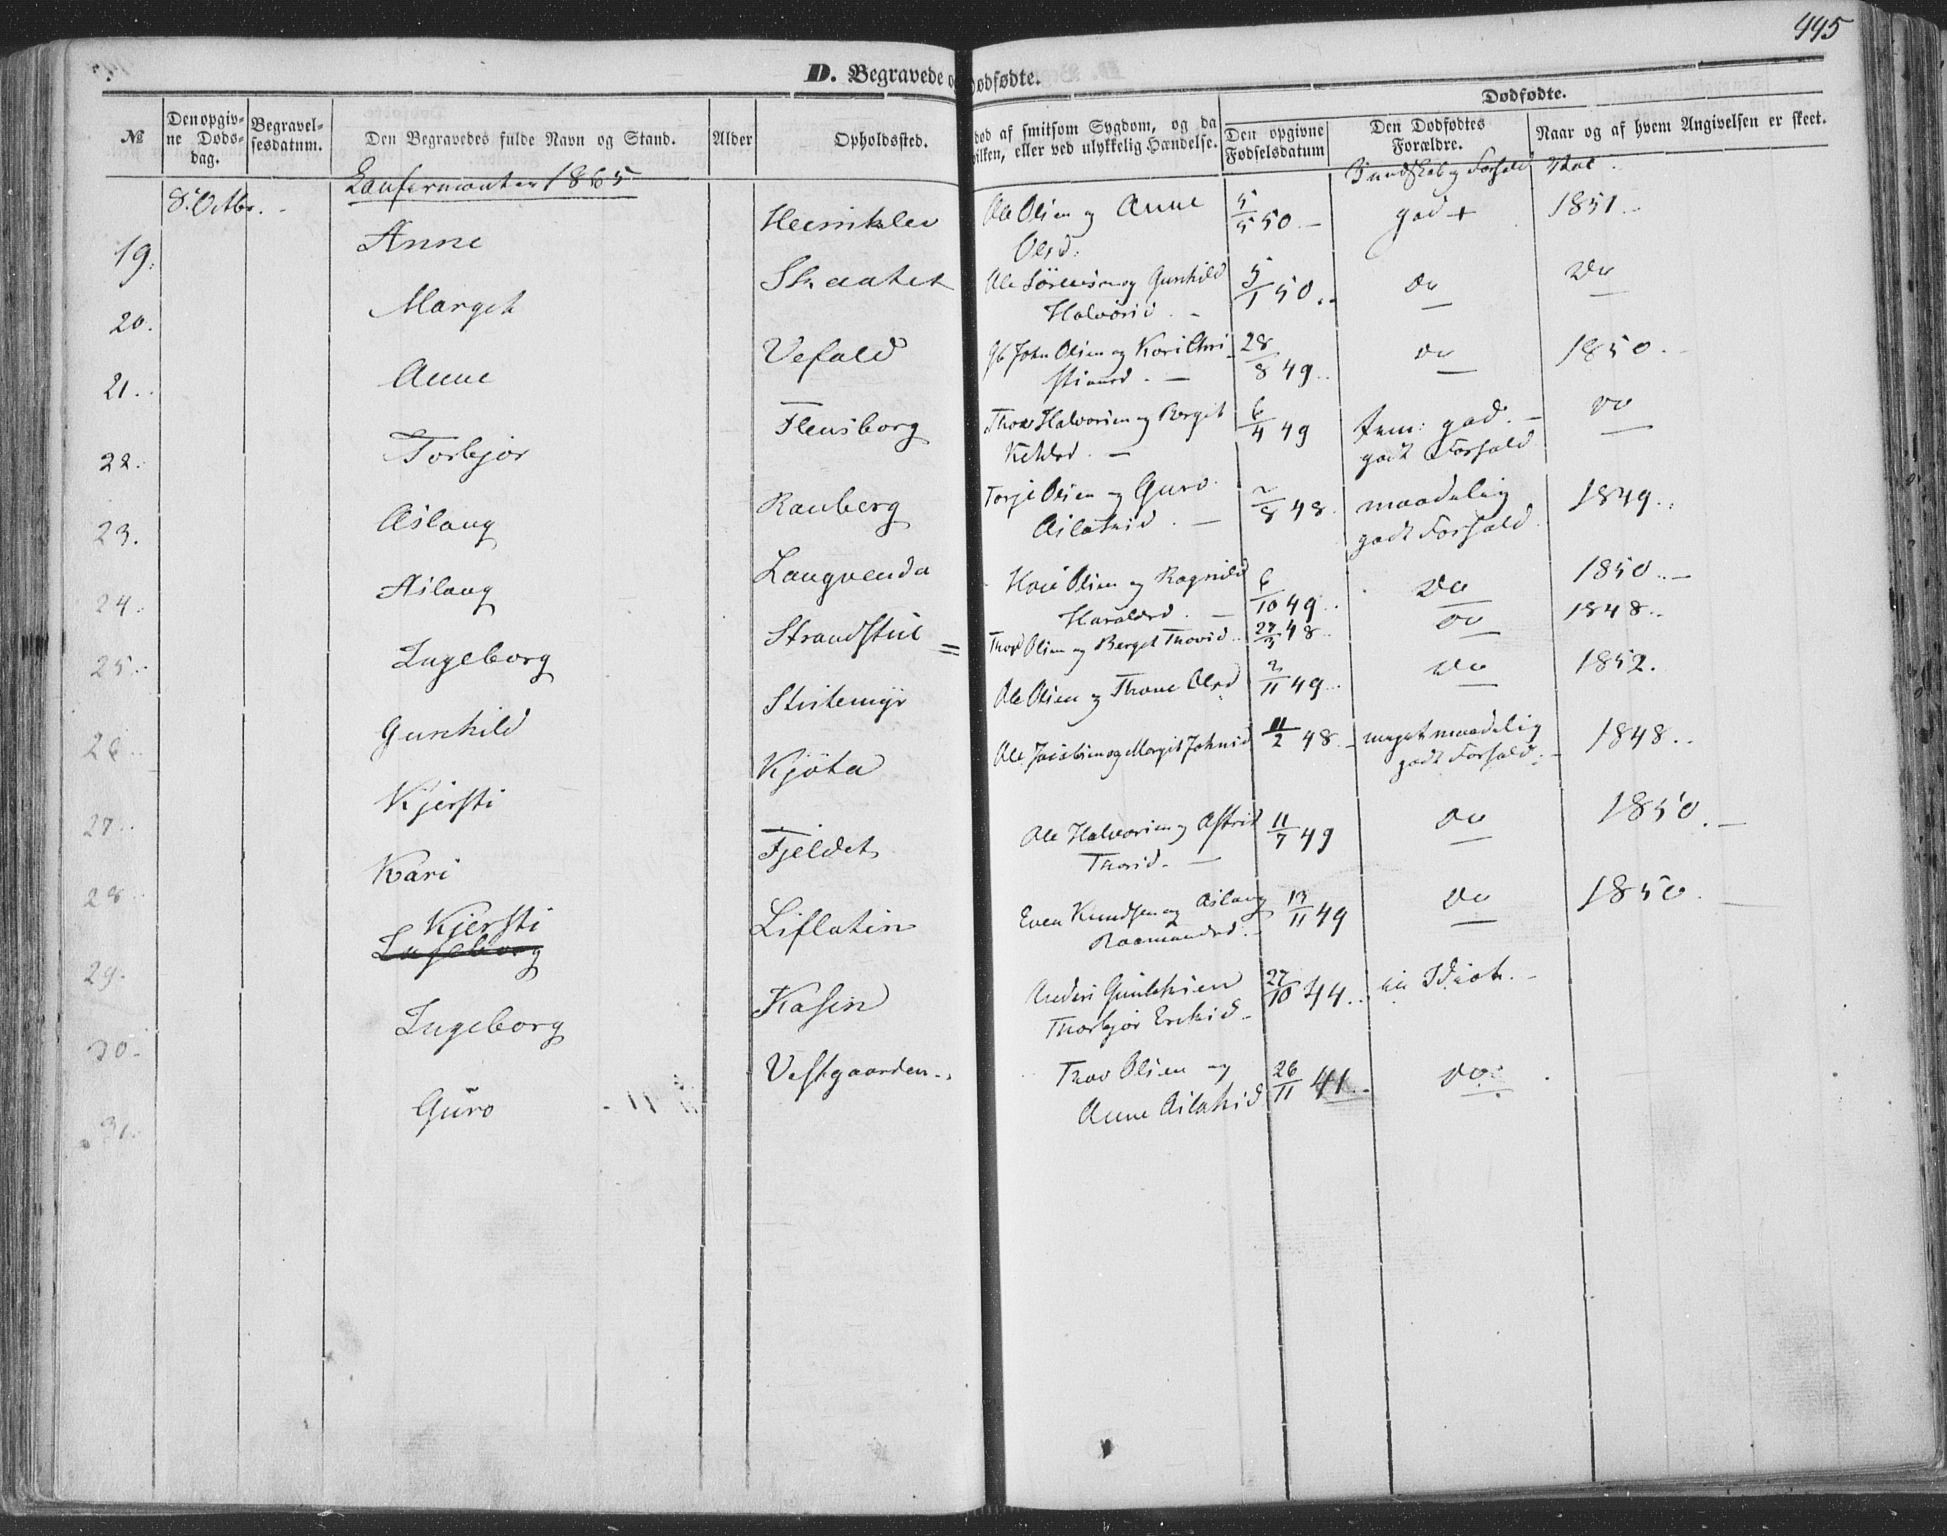 445
D. Begravede og Dødfødte.
Dødfødte.
№
Den opgivne Dødsdag.
Begravelsesdatum.
Den Begravedes fulde Navn og Stand.
Alder
Opholdssted.
død af smitsom Sygdom, og da
hvilken, eller ved ulykkelig Hændelse.
Den opgivne Fødselsdatum
Den Dødfødtes Forældre.
Naar og af hvem Angivelsen er skeet.
8. Octbr. Confirmanter 1865 Kundskab og Forhold
19. Anne Heimklev Ole Olsen og Anne Olsd. 5/5 50. god + 1851.
20. Marget Skaatet Ole Sörensen og Gunhild Halvorsd. 5/1 50. do do
21. Anne Vefald John Olsen og Kari Christiansd. 28/8 49. do 1850.
22. Torbjør Flensborg Thov Halvorsen og Berget Ketilsd. 6/4 49 tem: god. godt Forhold do
23. Aslaug Rauberg Torje Olsen og Guro Aslaksd. 2/8 48. maadelig godt Forhold 1849.
24. Aslaug Langvenda Hove Olsen og Ragnild Haraldsd. 6/10 49. do 1850.
25. Ingeborg Strandstul = Thor Olsen og Berget Thovsd. 27/3 48. do 1848.
26. Gunhild Stistemyr Ole Olsen og Thone Olsd 2/11 49. do 1852.
27. Kjersti Kjöta Ole Jacobsen og Margit Johnsd 11/2 48. meget maadelig godt Forhold. 1848.
28. Kari Fjeldet Ole Halvorsen og Astrid Thorsd. 11/7 49 do 1850.
29. Kjersti Ingeborg Liflatin Even Knudsen og Aslaug Raamundsd. 13/11 49 do 1850.
30. Ingeborg Kasin Anders Gunleksen Thorbjør Ericksd. 27/10 44. en Idiot.
31. Guro Vestgaarden. Thov Olsen og Anne Aslaksd 26/11 41. do.